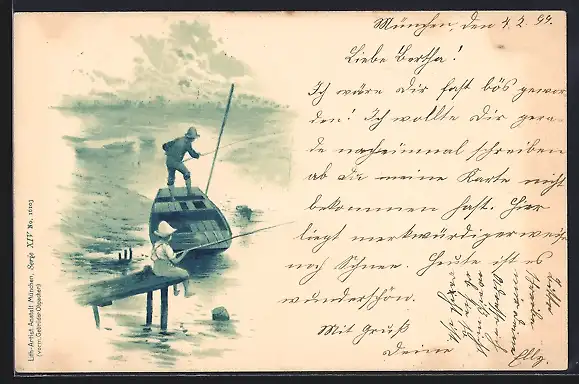 München, den 4.2.99.
Liebe Bertha!
Ich wäre Dir fast bös gewor
den! Ich wollte Dir gera-
de nocheinmal schreiben
ob Du meine Karte nicht
bekommen hast. Hier
liegt merkwürdigerweise
noch Schnee. Heute ist es
wunderschön.
Mit Gruß
Deine
Elly.
Lith.-Artist. Anstalt München, Serie XIV No. 16103
(vorm. Gebrüder Obpacher)